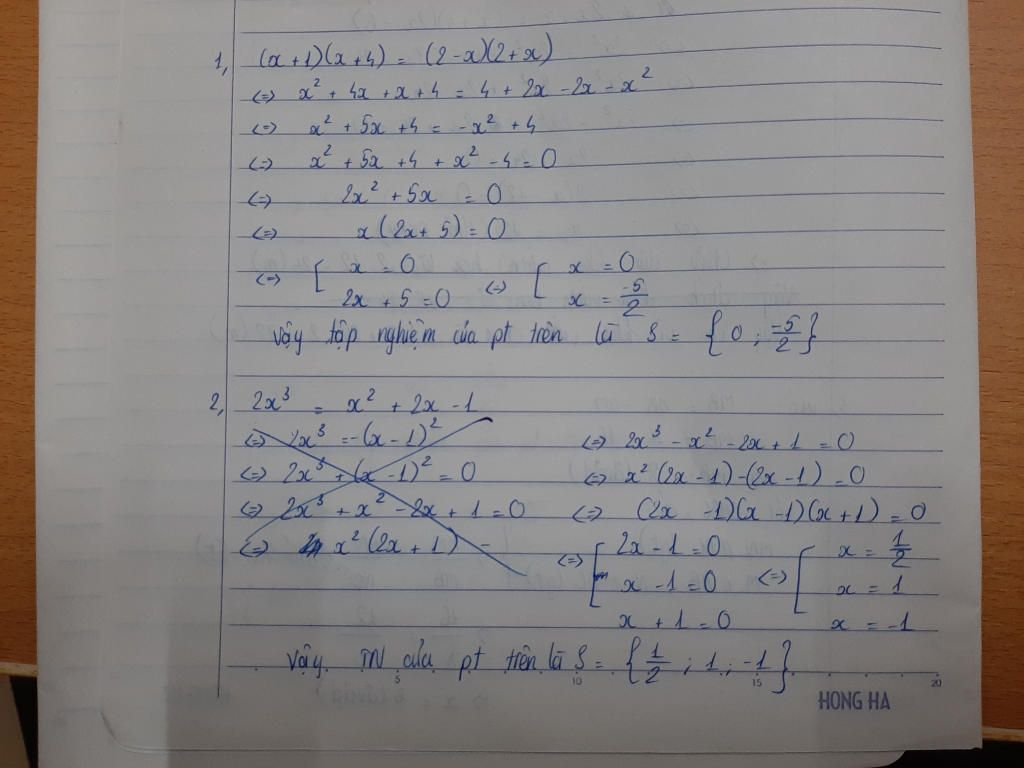 1, (x+1)(x+4) = (2-x)(2+x)
<=> x² + 4x + x + 4 = 4 + 2x - 2x - x²
<=> x² + 5x + 4 = -x² + 4
<=> x² + 5x + 4 + x² - 4 = 0
<=> 2x² + 5x = 0
<=> x(2x+5) = 0
<=> [ x = 0 <=> [ x = 0
2x + 5 = 0 x = -5/2
Vậy tập nghiệm của pt trên là S = {0 ; -5/2}
2, 2x³ = x² + 2x - 1
<=> 2x³ = -(x-1)²
<=> 2x³ + (x-1)² = 0
<=> 2x³ + x² - 2x + 1 = 0
<=> x²(2x+1) -
<=> 2x³ - x² - 2x + 1 = 0
<=> x²(2x-1)-(2x-1) = 0
<=> (2x-1)(x-1)(x+1) = 0
<=> [ 2x-1 = 0 <=> [ x = 1/2
x - 1 = 0 x = 1
x + 1 = 0 x = -1
Vậy TN của pt trên là S = {1/2 ; 1 ; -1}
5 10 15 20
HONG HA